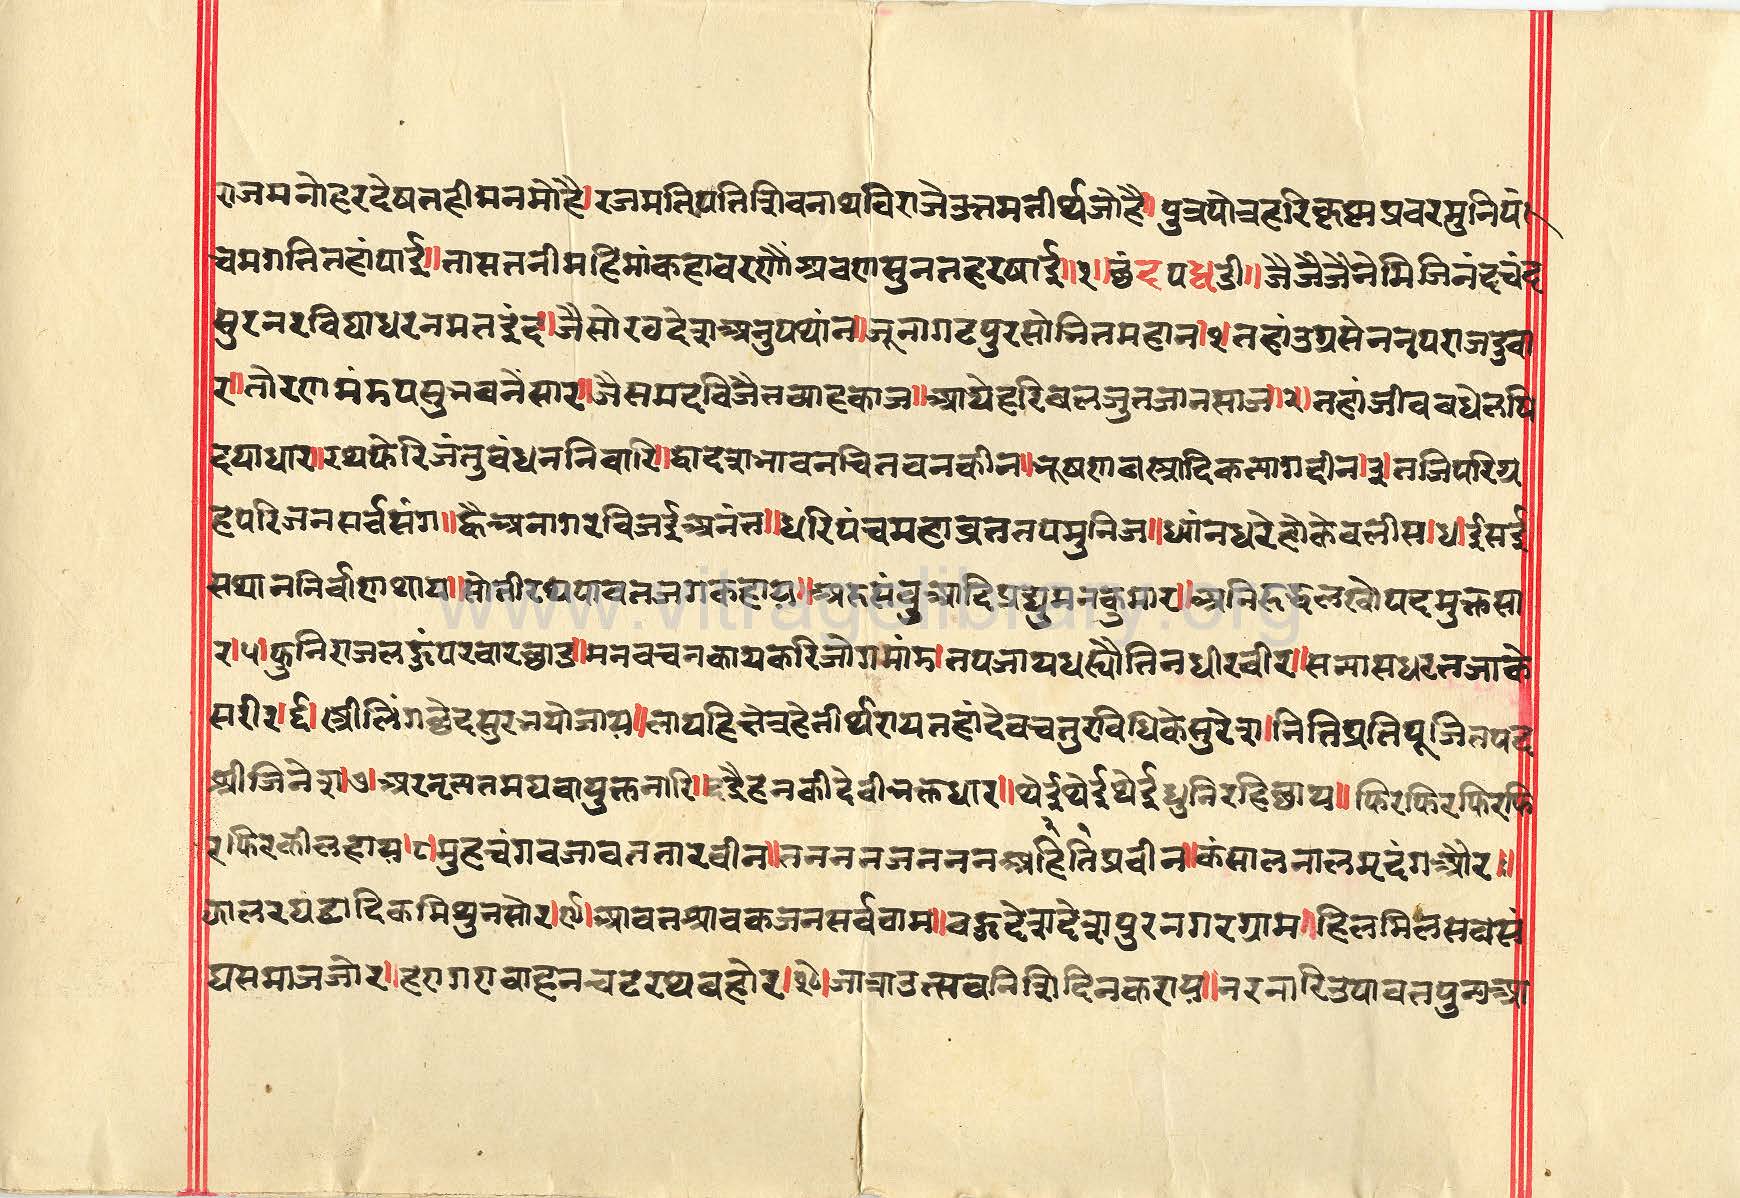 राजमनोहरदेषतहीमनमोहै।रजमतिपतिशिवनाथविराजैउत्तमतीर्थजोहै॥पुत्रपोत्रहरिकृष्णप्रवरमुनिपं
चमगतितहांपाई॥तासतनीमहिमांकहावरणौंश्रवणसुनतहरषाई॥१॥छंदपध्धडी॥जैजैजैनेमिजिनंदचंद
सुरनरविद्याधरनमतइंद॥जैसोरठदेशअनुपथांन॥जूनागढपुरसोभितमहान।१।तहांउग्रसेननृपराजदुवा
र॥तोरणमंडपसुभबनेसार॥जैसमदविजैतव्याहकाज॥आयेहरिबलजुतजानसाज।२।तहांजीवबधेलषि
दयाधार॥रथफेरिजंतुबंधननिवारि॥द्वादेशभावनचितवनकीन॥भूषणवस्त्रादिकत्यागदीन।३।तजिपरिग्र
हपरिजनसर्वसंग॥ह्वैअनागारविजईअनंत॥धरिपंचमहाव्रततपमुनिज॥ध्यांनधरेहोकेवलीस।४।ईसई
सथाननिर्वाणथाय॥सोतीरथपावनजगकहाय॥अरुसंबुआदिप्रद्युमनकुमार॥अनिरुद्धलह्योपदमुक्तसा
र।५।फुनिराजलहूंपरवारछाड॥मनवचनकायकरिजोगमांड।तपजायधर्यौतिनधीरवीर॥सन्यासधरतजाके
सरीर।६।स्त्रीलिंगछेदसुरनयोजाय॥तापहिक्षेत्रहेतीर्थरायतहांदेवचतुरविधिकेसुरेश।नितिप्रतिपूजितपद
श्रीजिनेश।७।अरनृत्यतमघवायुक्तनारि॥दूरैहनकीदेवीभक्तधार॥थेईथेईथेईधुनिरहिछाय॥फिरफिरफिरफि
रफिरकीलहाय।८।मुहचंगवजावततारवीन॥तनननजननन अहितिप्रवीन॥कंसालतालमृदंगऔर॥
झालरघंटादिकमिथुनसोर।९।आवतश्रावकजनसर्ववाम॥बहूदेशदेशपुरनगरग्राम॥हिलमिलसबसं
घसमाजजोर॥हयगयवाहनचढरथबहोर।१०।जात्राउत्सवनिशिदिनकराय॥नरनारिउपावतपुन्यआ